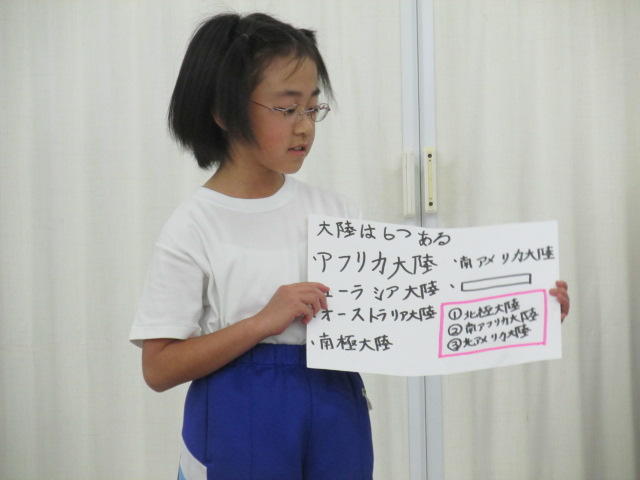 大陸は6つある
・アフリカ大陸
ューラシア大陸
・オーストラリア大陸
・南極大陸
・南アメリカ大陸
・
①北極大陸
②南アフリカ大陸
③北アメリカ大陸